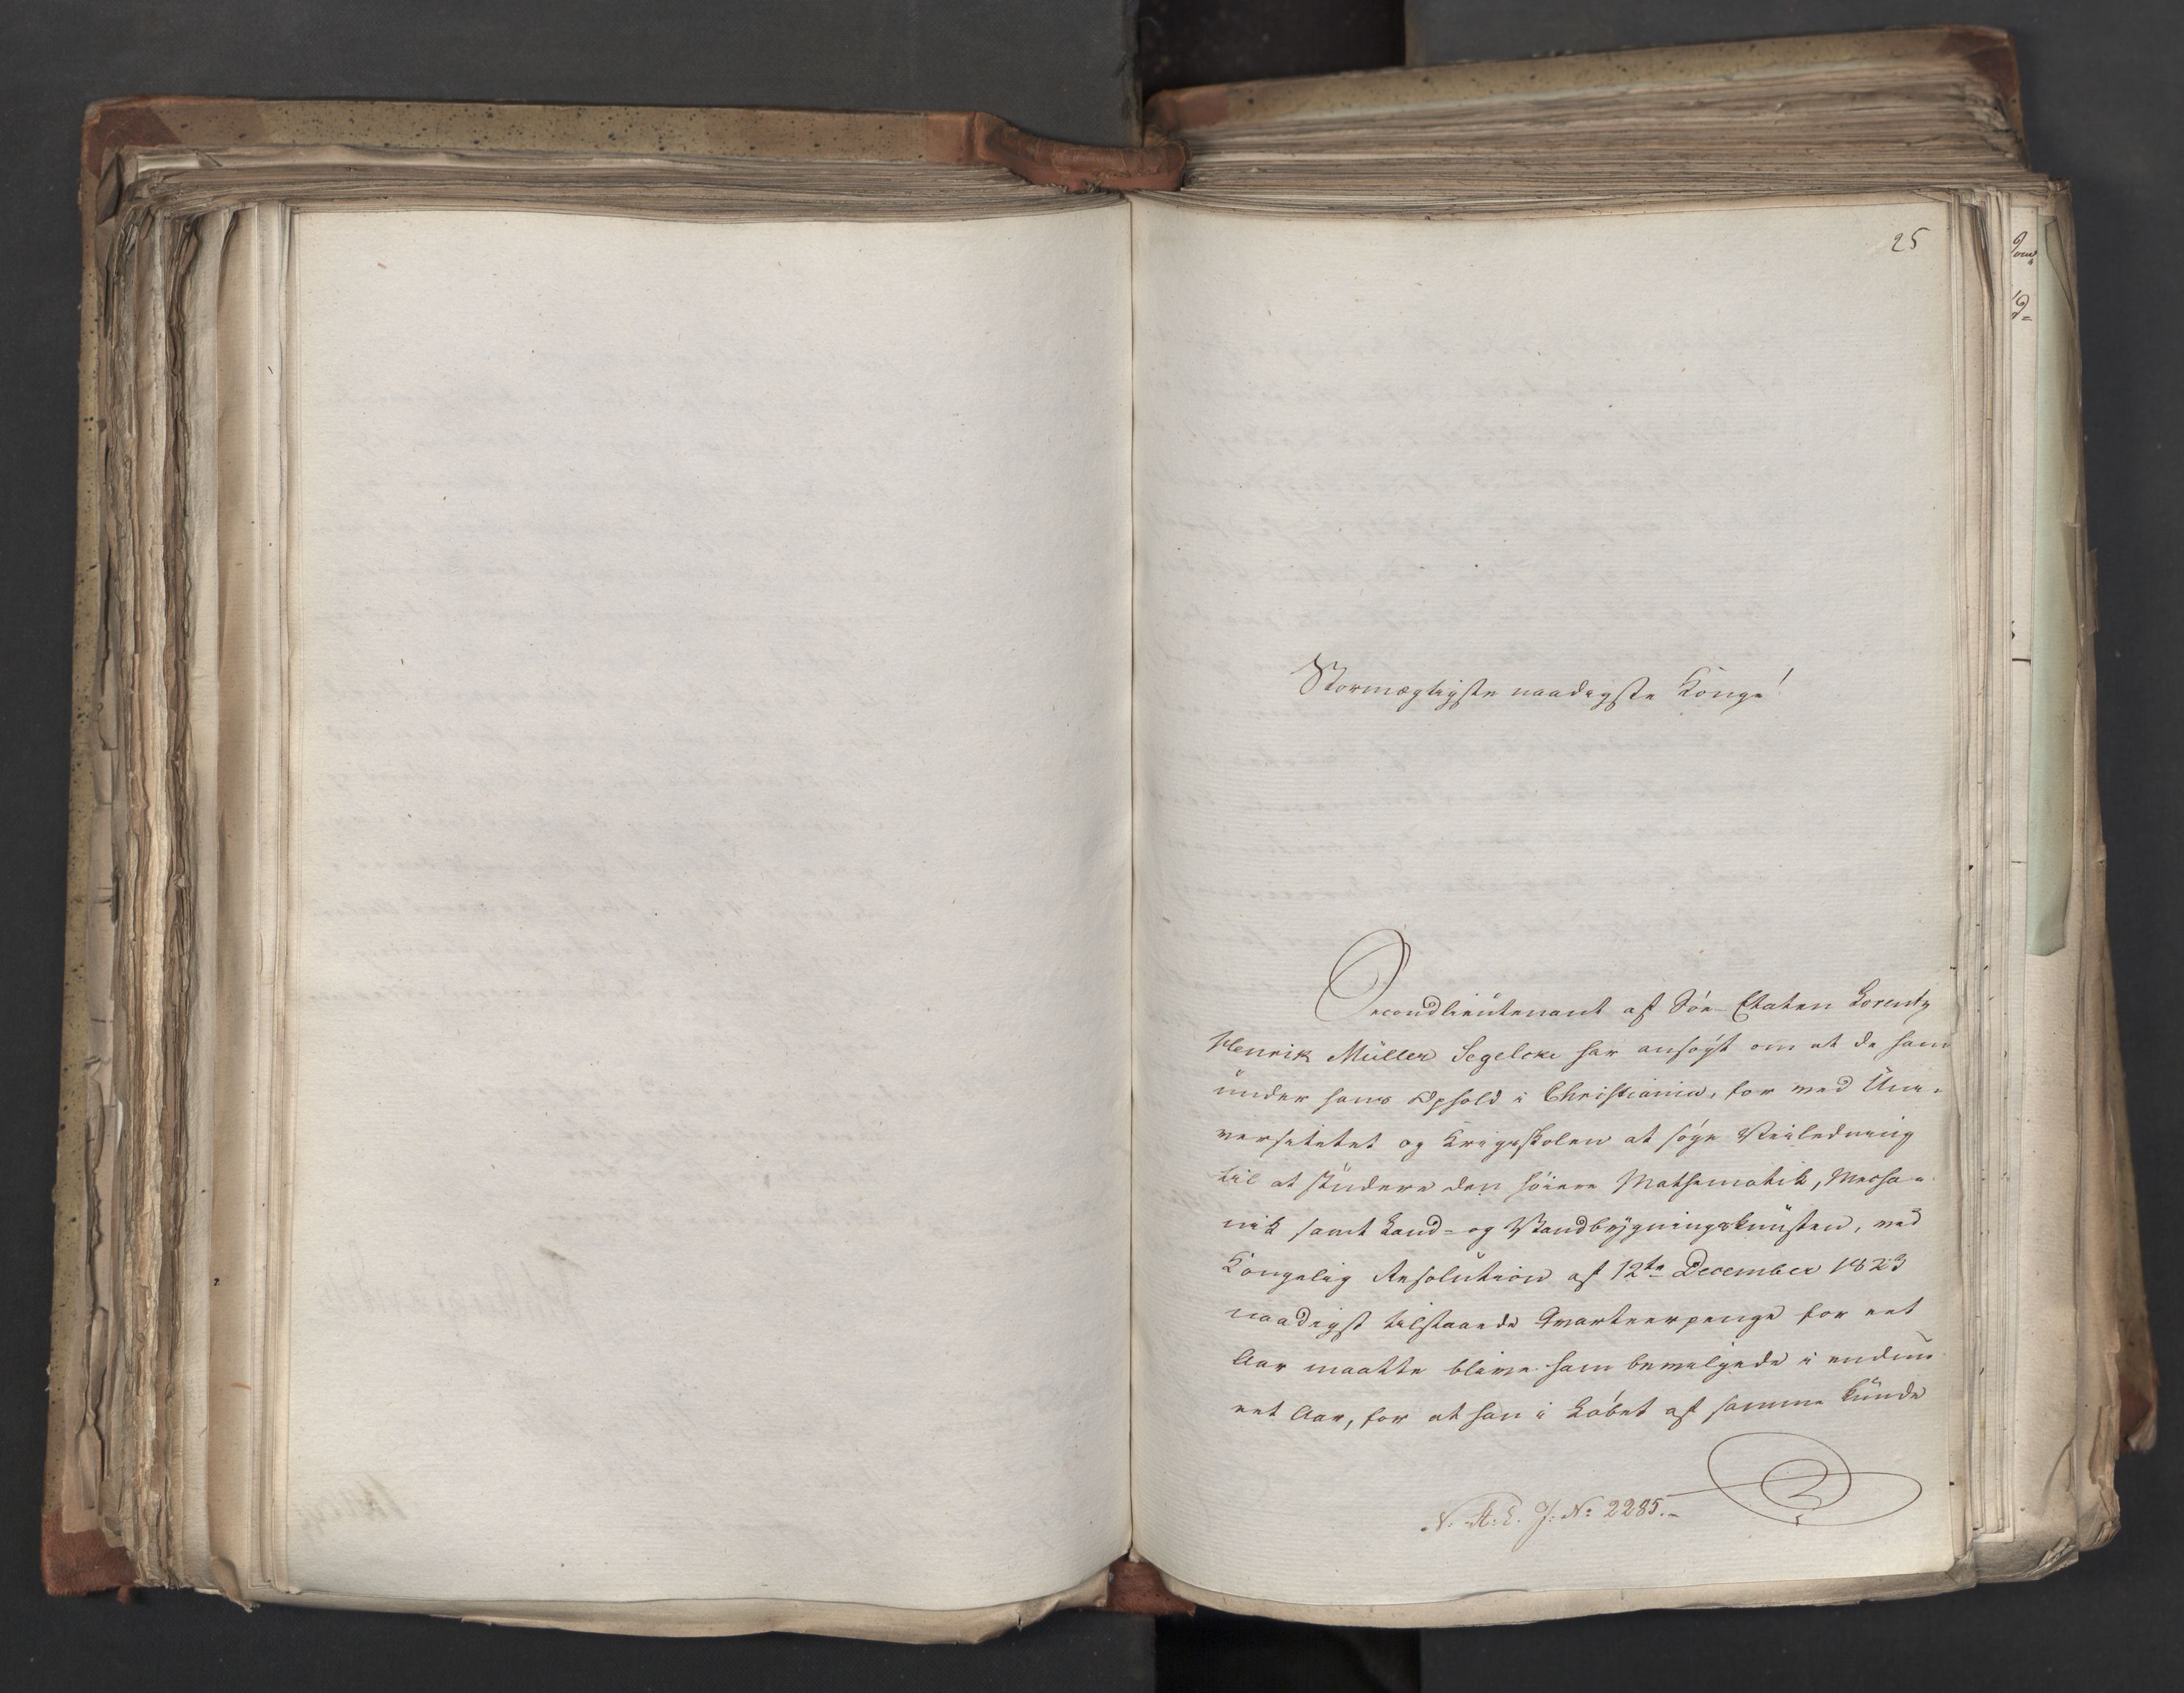 25
Stormægtigste naadigste Konge!
Secondlieutenant af Søe-Etaten Lorentz
Henrik Müller Segelcke har ansøgt om at de ham
under hans Ophold i Christiania, for ved Uni-
versitetet og Krigsskolen at søge Veiledning
til at studere den høiere Mathematik, Mecha-
nik samt Land- og Vandbygningskunsten, ved
Kongelig Resolution af 12te December 1823
naadigst tilstaaede Qvarteerpenge for eet
Aar maatte blive ham bevilgede i endnu
eet Aar, for at han i Løbet af samme kunde
N. A: E. J: No 2285.-